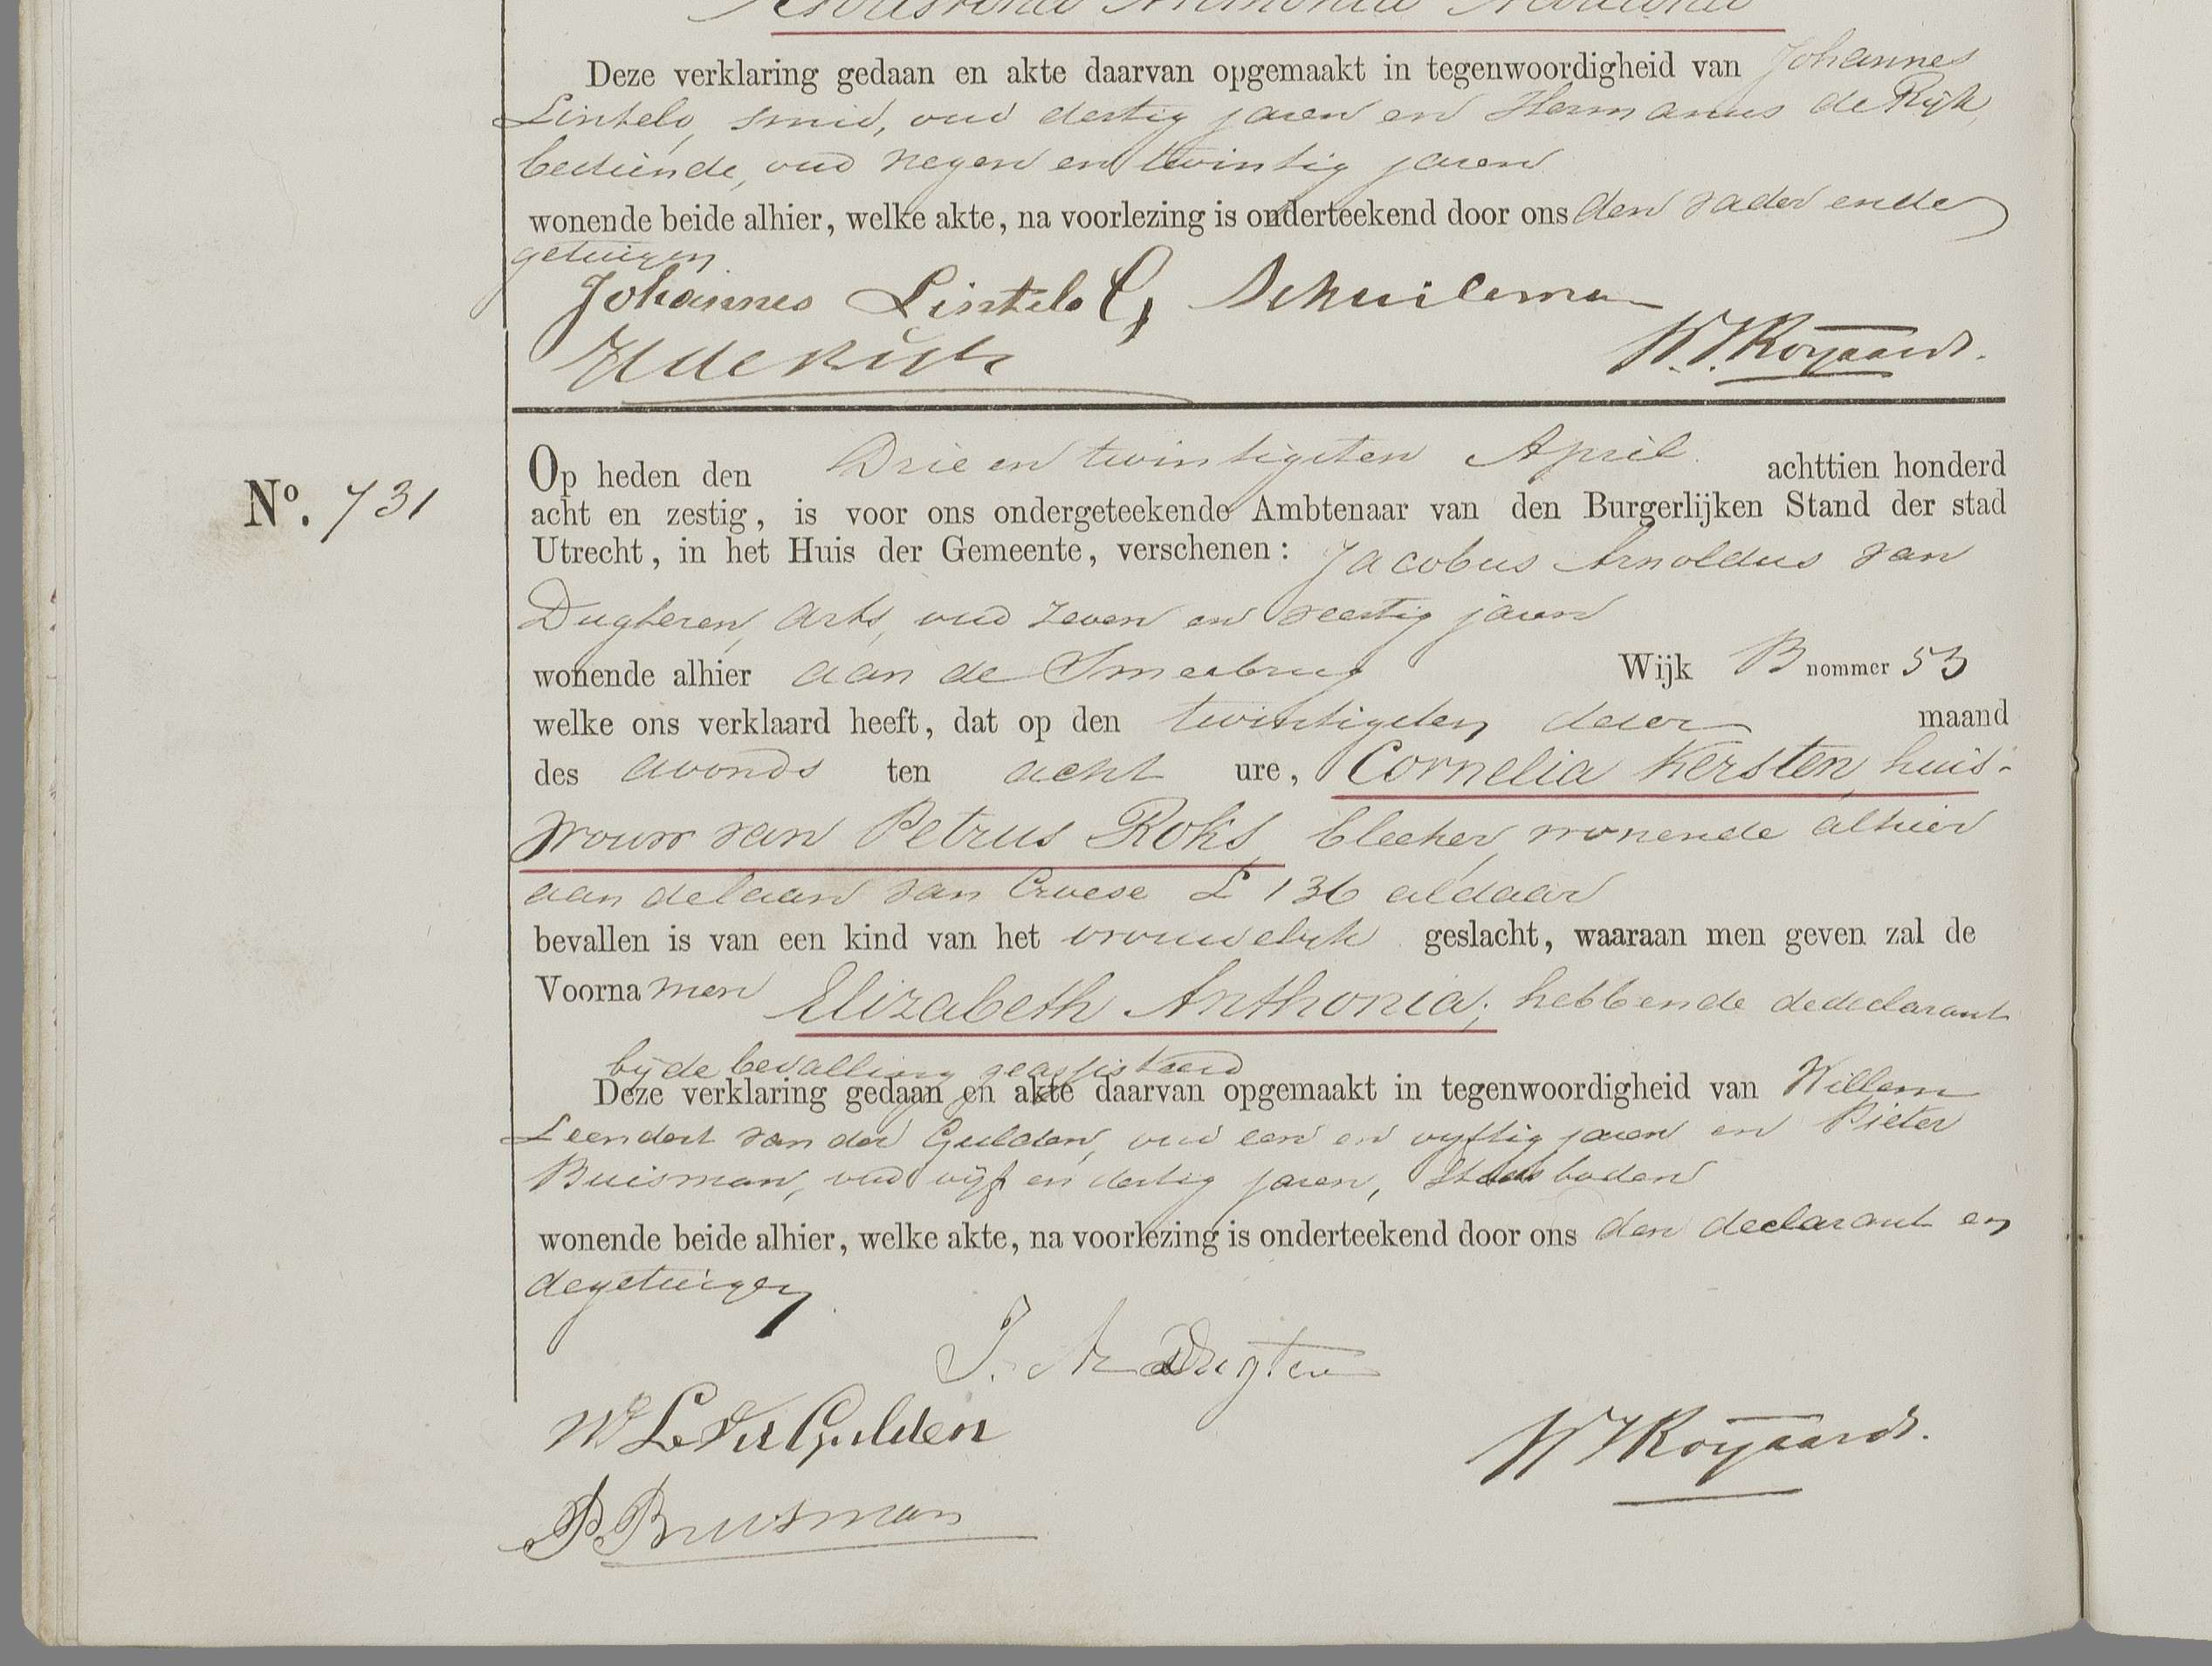 Deze verklaring gedaan en akte daarvan opgemaakt in tegenwoordigheid van Johannes
Lintelo, smid, oud dertig jaren en Hermanus de Rijk,
bediende, oud negen en twintig jaren
wonende beide alhier, welke akte, na voorlezing is onderteekend door ons den vader en de
getuigen.
Johannes Lintelo C, Schuileman
H de Rijk W. J. Royaards.
Op heden den Drie en twintigsten April achttien honderd
No. 731
acht en zestig, is voor ons ondergeteekende Ambtenaar van den Burgerlijken Stand der stad
Utrecht, in het Huis der Gemeente, verschenen: Jacobus Arnoldus van
Dugteren, arts, oud zeven en veertig jaren
wonende alhier aan de Smeebrug Wijk B nommer 53
welke ons verklaard heeft, dat op den twintigsten dezer maand
des avonds ten acht ure, Cornelia Kersten, huis-
vrouw van Petrus Roks, bleeker, wonende alhier
aan de laan van Croese L 136 aldaar
bevallen is van een kind van het vrouwelijk geslacht, waaraan men geven zal de
Voornamen Elizabeth Anthonia; hebbende de declarant
bij de bevalling geassisteerd
Deze verklaring gedaan en akte daarvan opgemaakt in tegenwoordigheid van Willem
Leendert van der Gulden, oud een en vijftig jaren en Pieter
Buisman, oud vijf en dertig jaren, Stadsboden
wonende beide alhier, welke akte, na voorlezing is onderteekend door ons den declarant en
de getuigen.
W L vd Gulden
W J Royaards.
P. Buisman